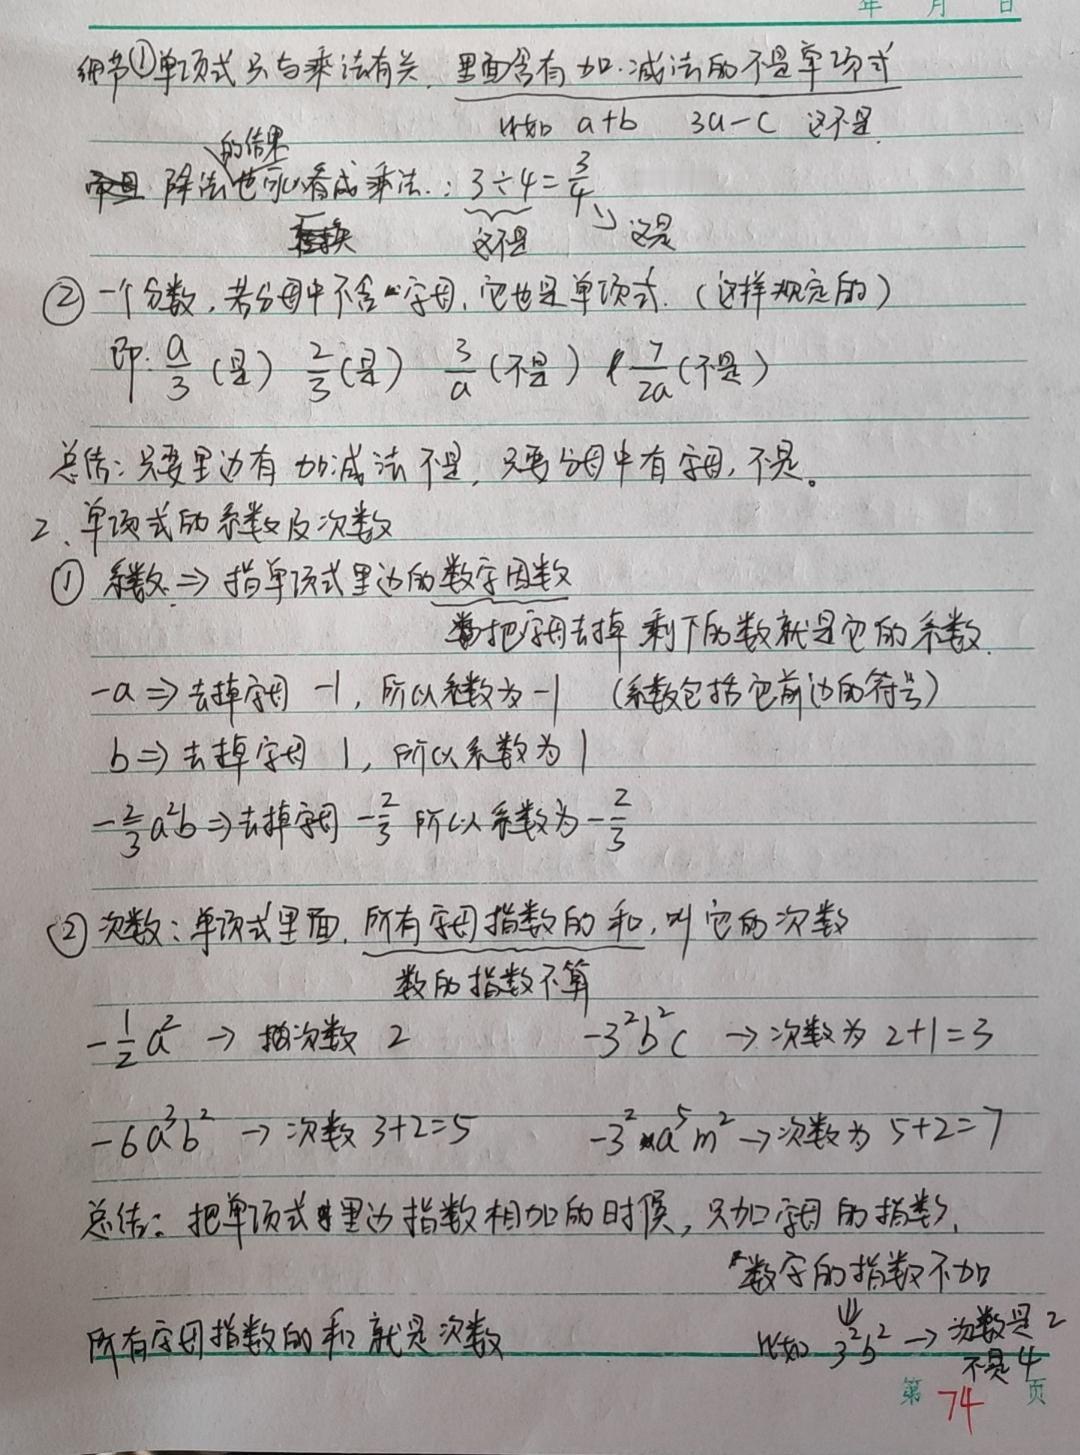 年 月 日
细节①单项式只与乘法有关，里面含有加.减法的不是单项式
比如 a+b 3a-c 这不是
的结果
除法也可以看成乘法.: 3÷4=3/4
这不是 这是
② 一个分数，若分母中不含字母，它也是单项式.（这样规定的）
即: a/3 (是) 2/3 (是) 3/a (不是) 7/2a (不是)
总结: 只要里边有加减法不是，只要分母中有字母，不是。
2、单项式的系数及次数
① 系数 ⇒ 指单项式里边的数字因数
把字母去掉 剩下的数就是它的系数.
-a ⇒ 去掉字母 -1，所以系数为-1 （系数包括它前边的符号）
b ⇒ 去掉字母 1，所以系数为1
-2/3a²b ⇒ 去掉字母 -2/3 所以系数为-2/3
② 次数: 单项式里面，所有字母指数的和，叫它的次数
数的指数不算
-1/2a² → 次数 2 -3²b²c → 次数为 2+1=3
-6a³b² → 次数 3+2=5 -3²a⁵m² → 次数为 5+2=7
总结: 把单项式里边指数相加的时候，只加字母的指数，
数字的指数不加
所有字母指数的和就是次数 比如 3²b² → 次数是2
不是4
第 74 页